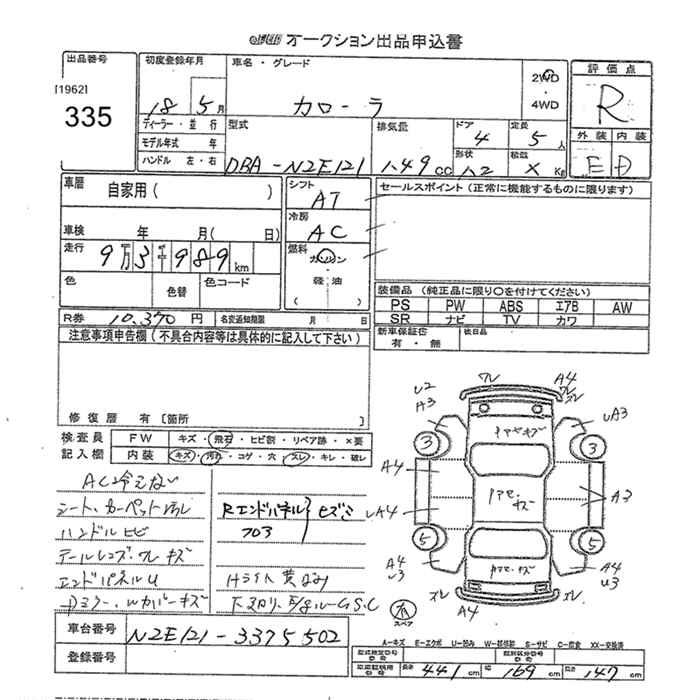 オークション出品申込書
出品番号
[1962]
335
初度登録年月
18 5月
車名・グレード
カローラ
2WD
・
4WD
評価点
R
外装 内装
E D
ディーラー・並行
モデル年式 年
ハンドル 左・右
型式
DBA-NZE121
排気量
1.49 cc
ドア
4
形状
定員
5人
積載
X Kg
車歴
自家用( )
車検 年 月( 日)
走行
9万3千989km
色
色替
色コード
シフト
AT
冷房
AC
燃料
ガソリン
・
軽油
( )
セールスポイント(正常に機能するものに限ります)
装備品 (純正品に限り○を付けてください)
PS PW ABS エアB AW
SR ナビ TV カワ
新車保証書
有・無
後日品
R券 10,370円
名変通知期限 月 日
注意事項申告欄(不具合内容等は具体的に記入して下さい)
修復歴 有[箇所 ]
検査員
記入欄
FW キズ・飛石・ヒビ割・リペア跡・×要
内装 キズ・汚れ・コゲ・穴・スレ・キレ・破レ
AC冷えない
シート、カーペット
ハンドルヒビ
テールレンズ・ワレキズ
エンドパネルU
Dミラー、Wカバーキズ
Rエンドパネル
703
ヒズミ
Hライト黄ばみ
U2
A3
ワレ
A4
ワレ
スレ
UA3
3
3
A4
UA4
A3
5
5
A4
U3
スレ
A4
スレ
A4
U3
スペア
車台番号 NZE121-3375502
登録番号
A-キズ E-エクボ U-凹み W-補修跡 S-サビ C-腐食 XX-交換済
型式指定番号
類別区分番号
長さ 441cm 幅 169cm 高さ 147cm